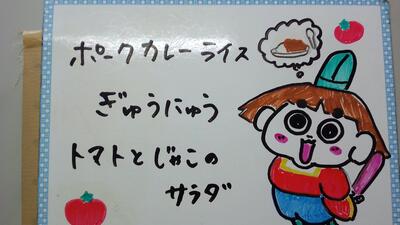 ポークカレーライス
ぎゅうにゅう
トマトとじゃこの
サラダ